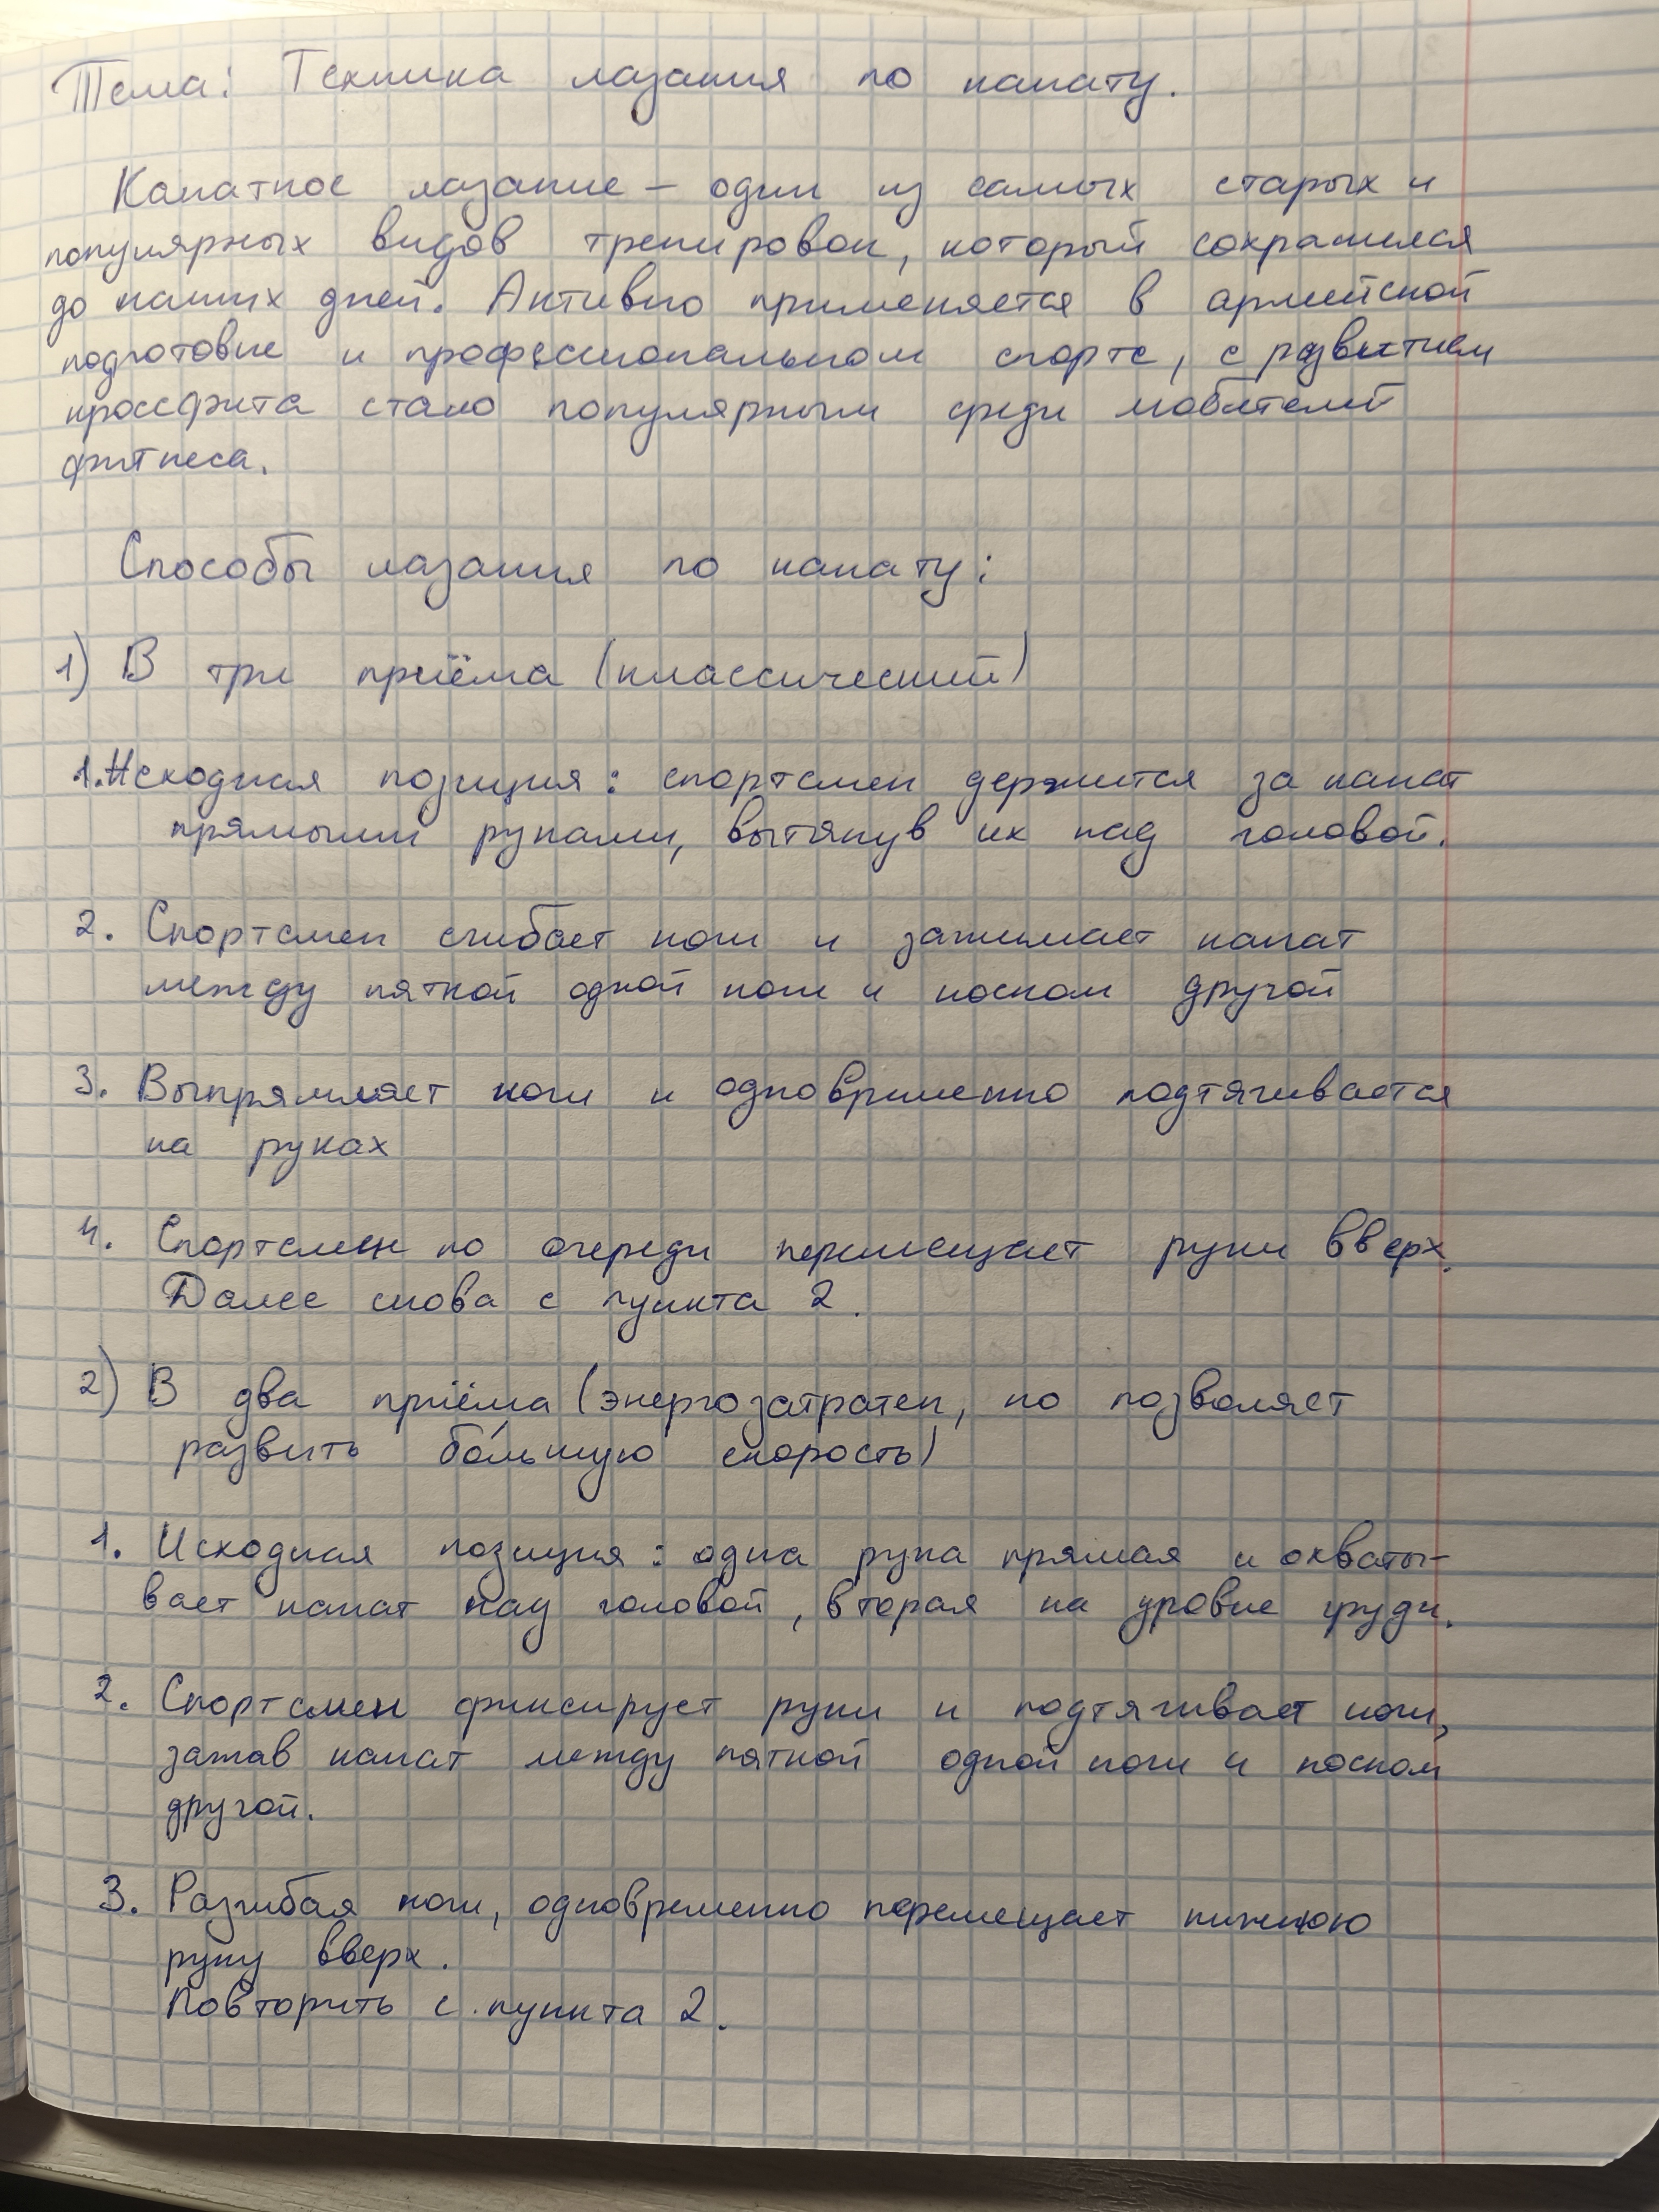 Тема: Техника лазания по канату.
Канатное лазание – один из самых старых и
популярных видов тренировок, который сохранился
до наших дней. Активно применяется в армейской
подготовке и профессиональном спорте, с развитием
кроссфита стало популярным среди любителей
фитнеса.
Способы лазания по канату:
1) В три приёма (классический)
1. Исходная позиция: спортсмен держится за канат
прямыми руками, вытянув их над головой.
2. Спортсмен сгибает ноги и зажимает канат
между пяткой одной ноги и носком другой
3. Выпрямляет ноги и одновременно подтягивается
на руках
4. Спортсмен по очереди перемещает руки вверх.
Далее снова с пункта 2.
2) В два приёма (энергозатратен, но позволяет
развить бо́льшую скорость)
1. Исходная позиция: одна рука прямая и охваты-
вает канат над головой, вторая на уровне груди.
2. Спортсмен фиксирует руки и подтягивает ноги,
зажав канат между пяткой одной ноги и носком
другой.
3. Разгибая ноги, одновременно перемещает нижнюю
руку вверх.
Повторить с пункта 2.